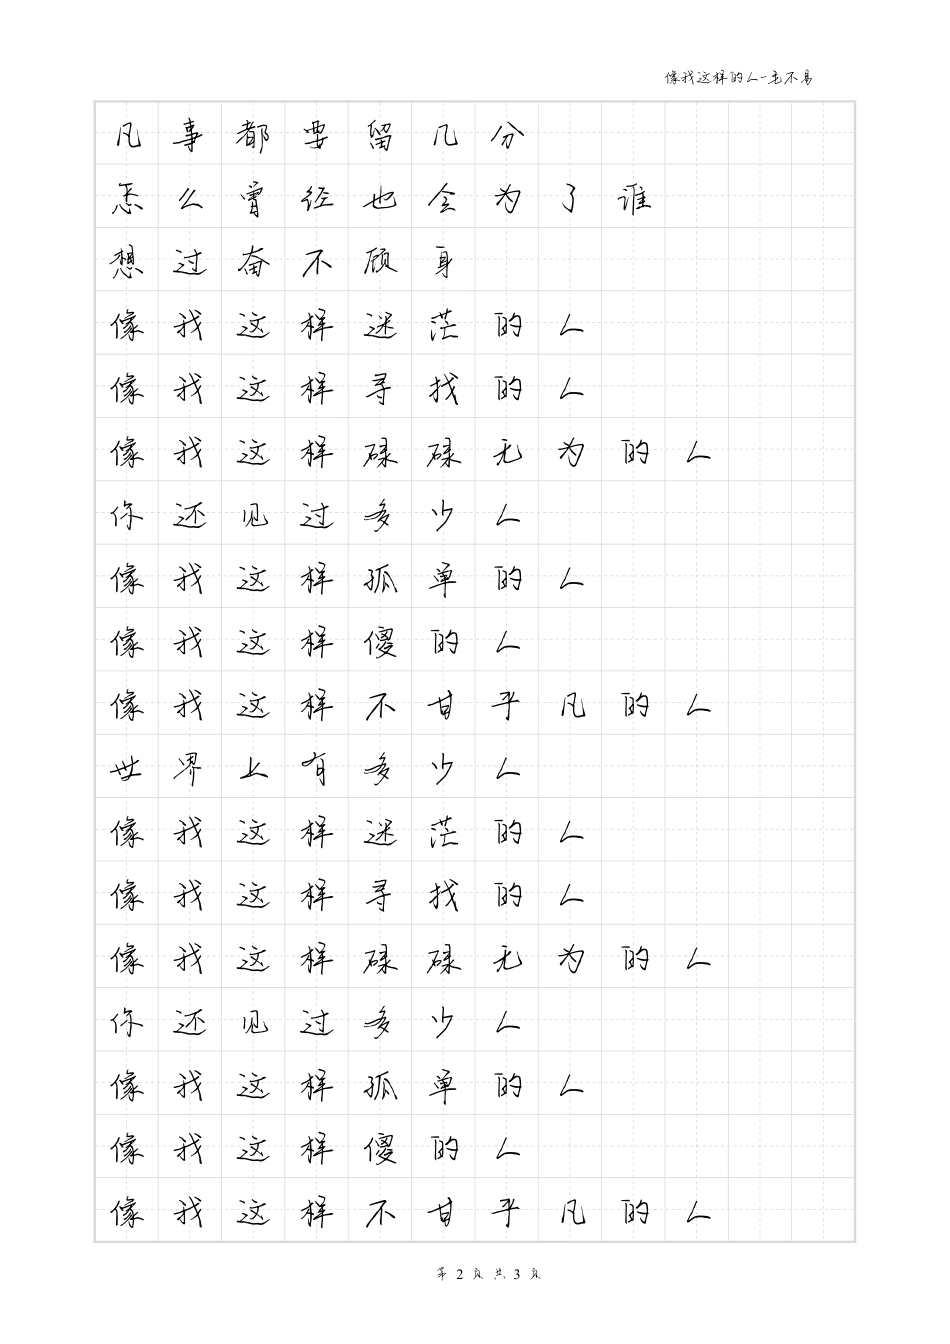 像我这样的人-毛不易
凡事都要留几分
怎么曾经也会为了谁
想过奋不顾身
像我这样迷茫的人
像我这样寻找的人
像我这样碌碌无为的人
你还见过多少人
像我这样孤单的人
像我这样傻的人
像我这样不甘平凡的人
世界上有多少人
像我这样迷茫的人
像我这样寻找的人
像我这样碌碌无为的人
你还见过多少人
像我这样孤单的人
像我这样傻的人
像我这样不甘平凡的人
第 2 页 共 3 页